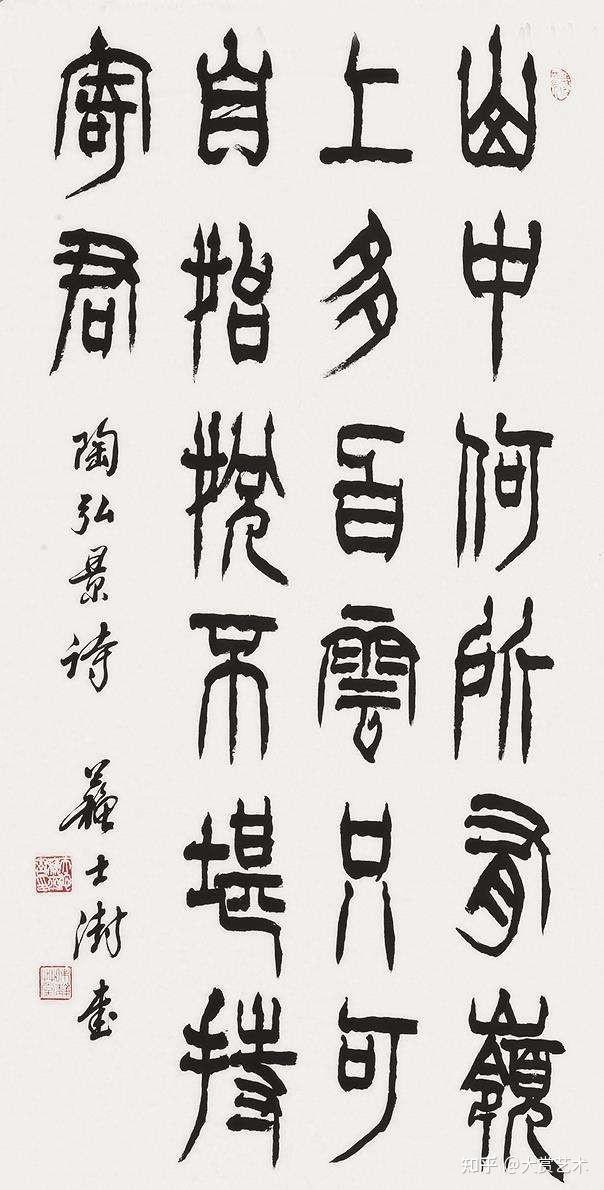 山中何所有嶺
上多白雲只可
自怡悅不堪持
寄君
陶弘景詩 蘇士澍書
知乎 @大赏艺术